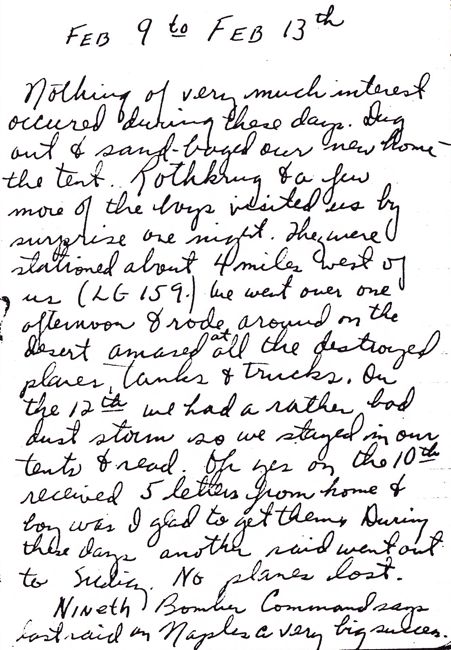 FEB 9 to FEB 13th
Nothing of very much interest
occured during these days. Dug
out & sand-baged our new home-
the tent. Rothkrug & a few
more of the boys visited us by
surprise one night. They were
stationed about 4 miles west of
us (LG 159.) We went over one
afternoon & rode around on the
desert amased at all the destroyed
planes, tanks & trucks. On
the 12th we had a rather bad
dust storm so we stayed in our
tents & read. Oh yes on the 10th
received 5 letters from home &
boy was I glad to get them. During
these days another raid went out
to Sicily. No planes lost.
Nineth Bomber Command says
last raid on Naples a very big success.